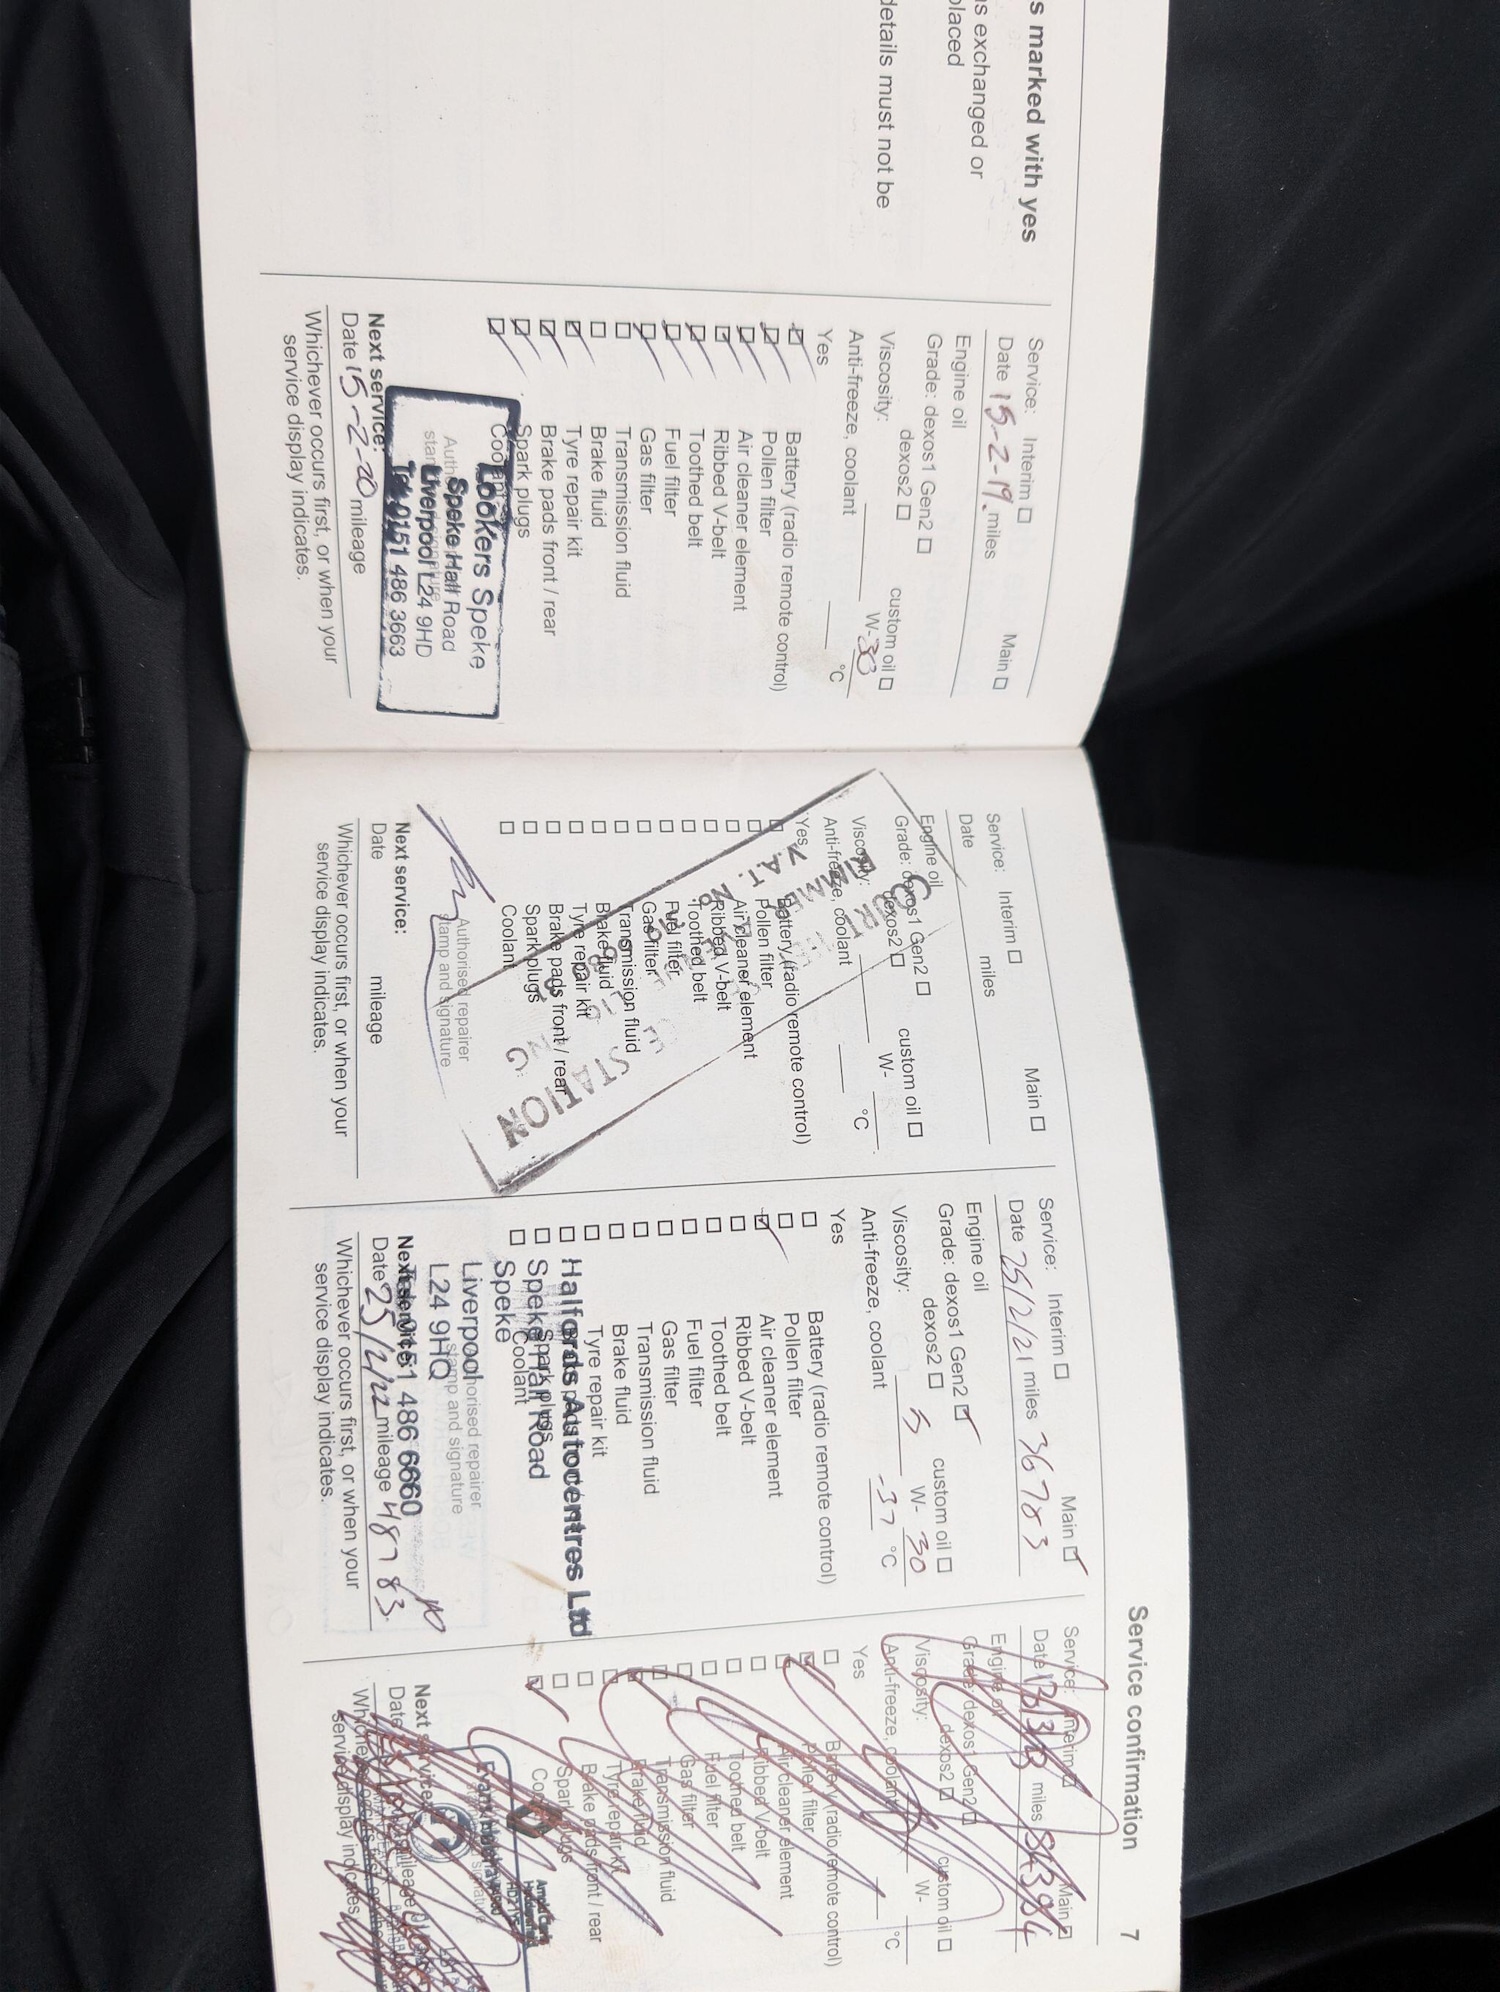 s marked with yes
s exchanged or
placed
details must not be
Service: Interim ☐ Main ☐
Date 15-2-19 miles
Engine oil
Grade: dexos1 Gen2 ☐ custom oil ☐
dexos2 ☐
Viscosity: W-30
Anti-freeze, coolant °C
Yes
☑ Battery (radio remote control)
☑ Pollen filter
☑ Air cleaner element
☑ Ribbed V-belt
☑ Toothed belt
☑ Fuel filter
☑ Gas filter
☐ Transmission fluid
☐ Brake fluid
☑ Tyre repair kit
☑ Brake pads front / rear
☑ Spark plugs
☑ Coolant
Lookers Speke
Speke Hall Road
Liverpool L24 9HD
Tel: 0151 486 3663
Next service:
Date 15-2-20 mileage
Whichever occurs first, or when your
service display indicates.
Service: Interim ☐ Main ☐
Date miles
Engine oil
Grade: dexos1 Gen2 ☐ custom oil ☐
dexos2 ☐
Viscosity: W-
Anti-freeze, coolant °C
Yes
☐ Battery (radio remote control)
☐ Pollen filter
☐ Air cleaner element
☐ Ribbed V-belt
☐ Toothed belt
☐ Fuel filter
☐ Gas filter
☐ Transmission fluid
☐ Brake fluid
☐ Tyre repair kit
☐ Brake pads front / rear
☐ Spark plugs
☐ Coolant
STATION
Authorised repairer
stamp and signature
Next service:
Date mileage
Whichever occurs first, or when your
service display indicates.
Service confirmation 7
Service: Interim ☐ Main ☑
Date 25/2/21 miles 36783
Engine oil
Grade: dexos1 Gen2 ☑ custom oil ☐
dexos2 ☐
Viscosity: 5 W-30
Anti-freeze, coolant -37 °C
Yes
☐ Battery (radio remote control)
☐ Pollen filter
☑ Air cleaner element
☐ Ribbed V-belt
☐ Toothed belt
☐ Fuel filter
☐ Gas filter
☐ Transmission fluid
☐ Brake fluid
☐ Tyre repair kit
☐ Brake pads front / rear
☐ Spark plugs
☐ Coolant
Halfords Autocentres Ltd
Speke Hall Road
Speke
Liverpool
L24 9HQ
0151 486 6660
Authorised repairer
stamp and signature
Next service:
Date 25/2/22 mileage 48783
Whichever occurs first, or when your
service display indicates.
Service: Interim Main ☑
Date miles 54384
Engine oil
Grade: dexos1 Gen2 ☐ custom oil ☐
dexos2 ☐
Viscosity: W-
Anti-freeze, coolant °C
Yes
☐ Battery (radio remote control)
☑ Pollen filter
Air cleaner element
☐ Ribbed V-belt
☐ Toothed belt
☐ Fuel filter
☐ Gas filter
☐ Transmission fluid
Brake fluid
☐ Tyre repair kit
☐ Brake pads front / rear
☐ Spark plugs
☑ Coolant
Next service:
Date mileage
Whichever occurs first, or when your
service display indicates.